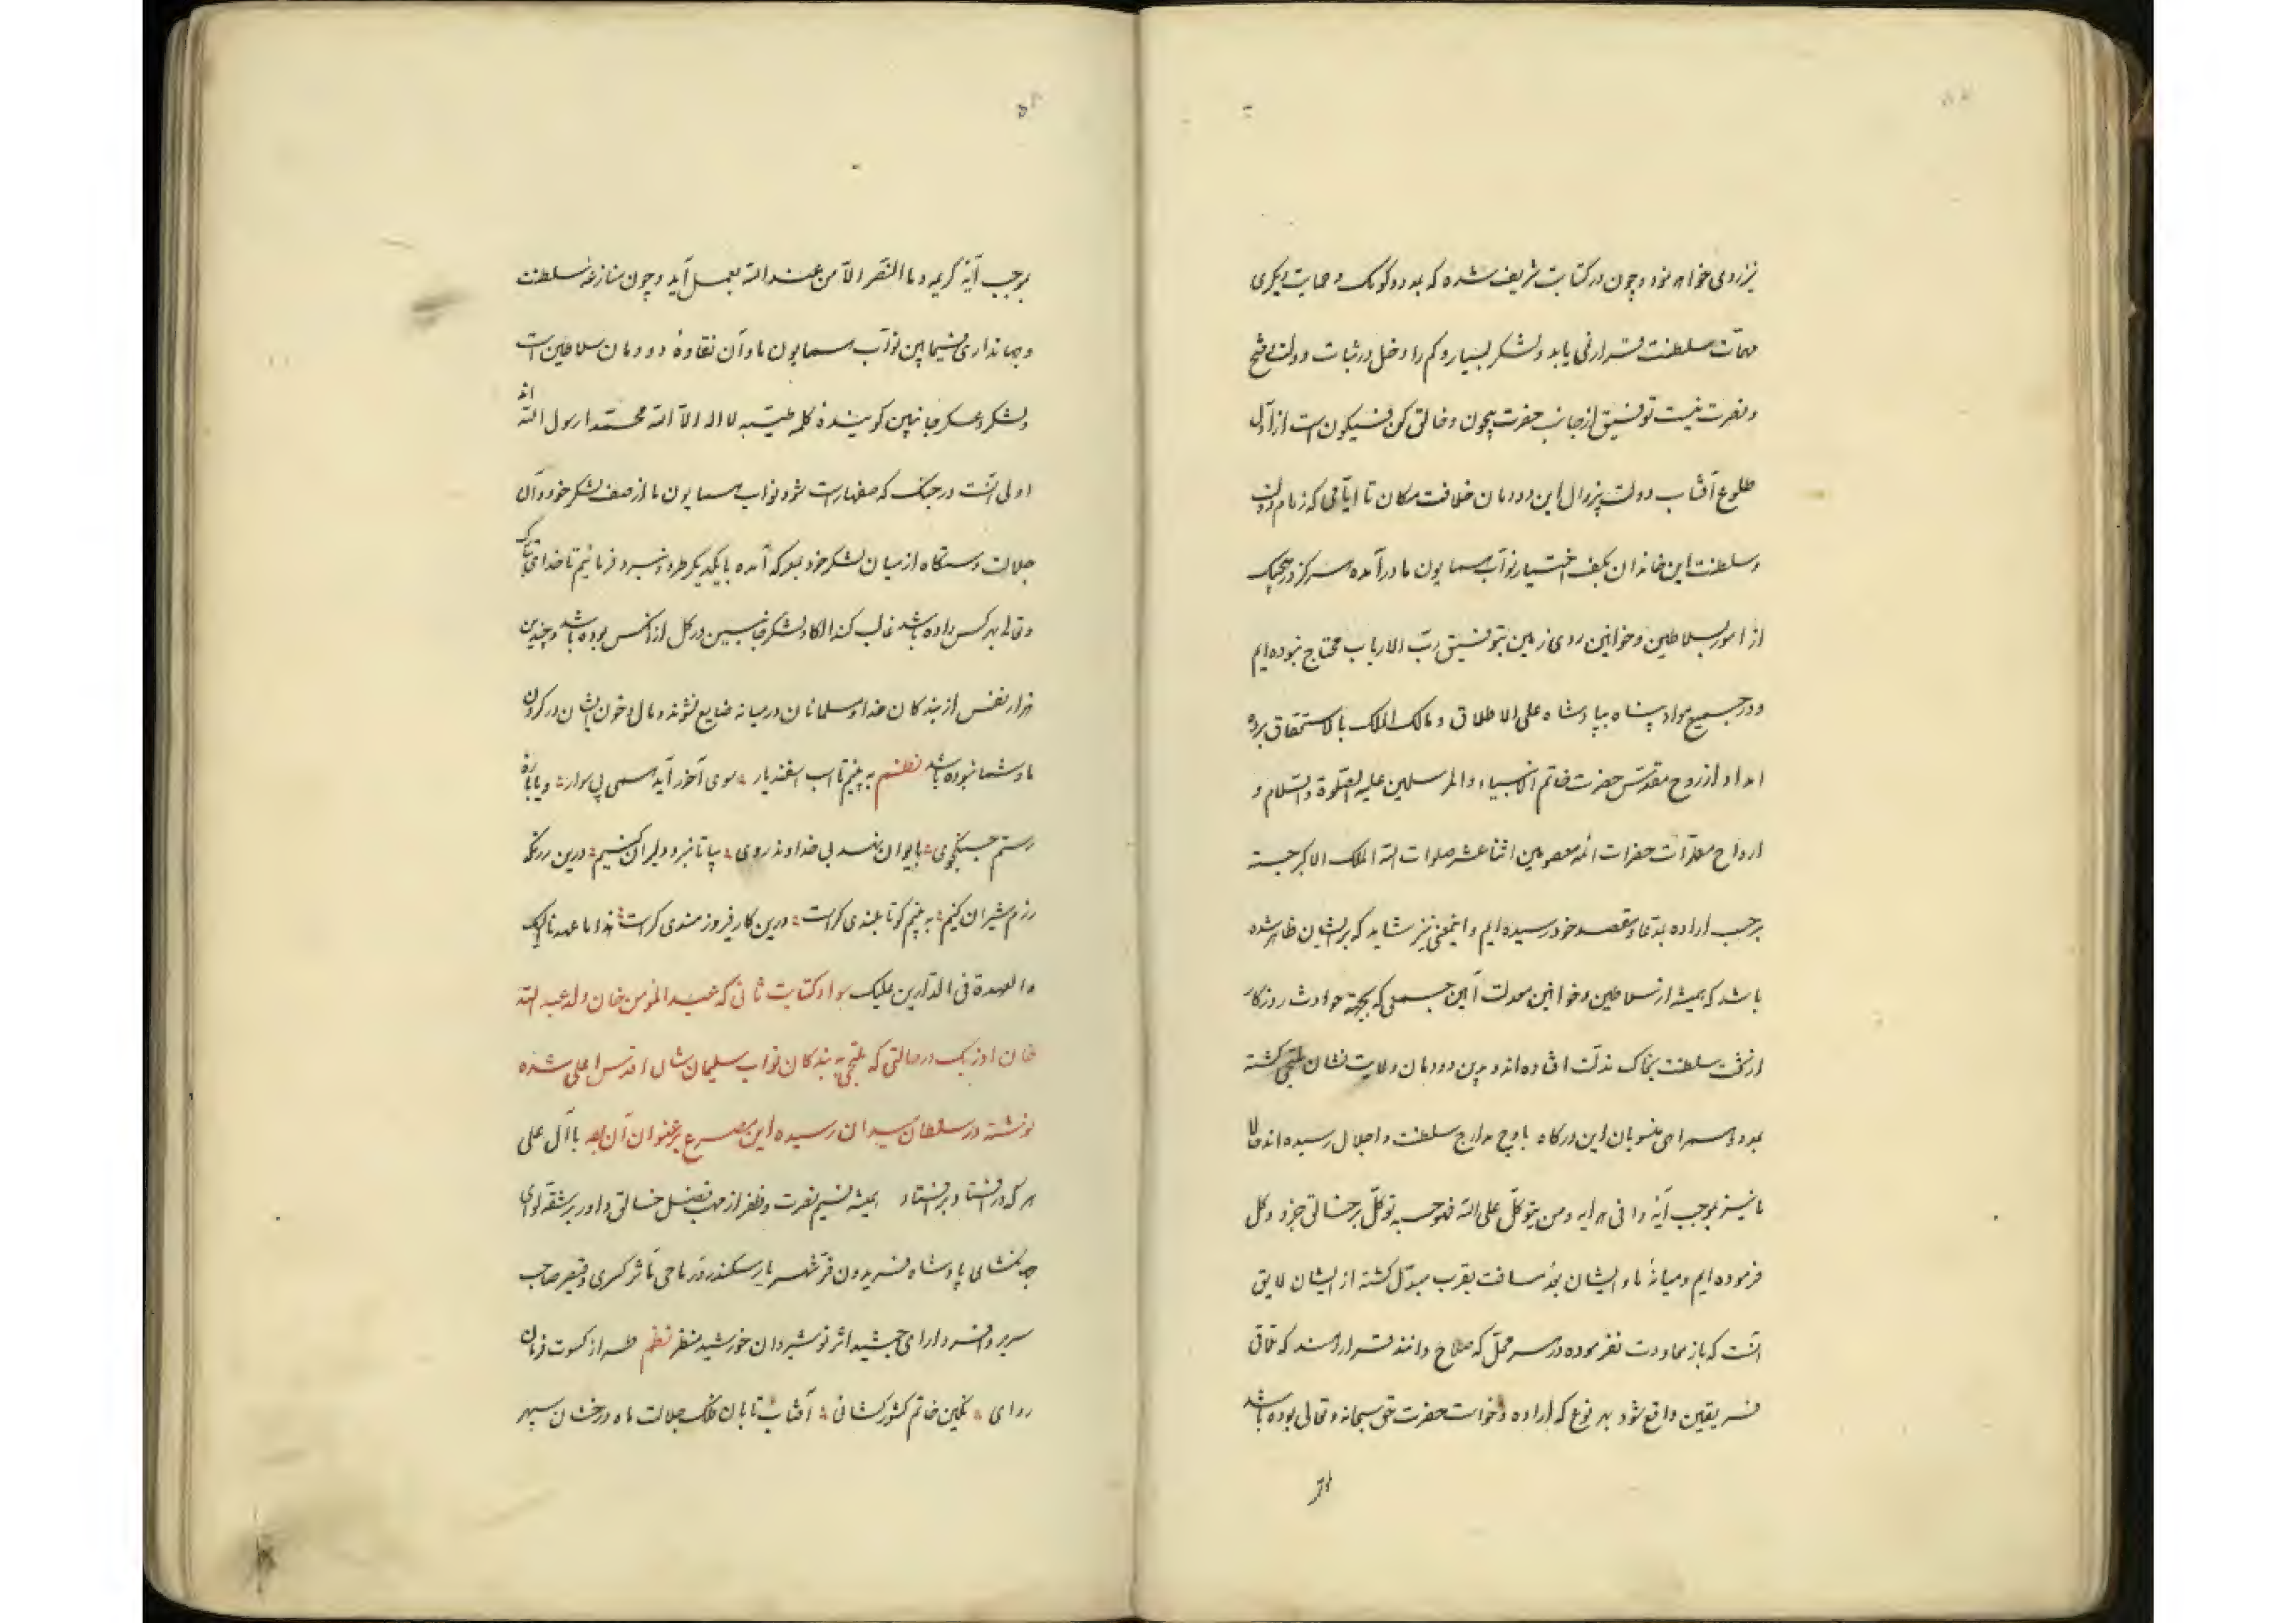 نیز روی خواهد نمود و چون در کتابت شریف شده که بمدد و کومک و حمایت دیگری
مهمات سلطنت قرار نمی یابد و لشکر بسیار و کم را دخل در ثبات دولت و فتح
و نصرت نیست توفیق از جانب حضرت بیچون و خالق کن فیکون است از اول
طلوع آفتاب دولت بیزوال این دودمان خلافت مکان تا ایامی که زمام دولت
و سلطنت این خاندان بکف اختیار نواب همایون ما درآمده هرگز در هیچیک
از امور بسلاطین و خوانین روی زمین بتوفیق رب الارباب محتاج نبوده ایم
و در جمیع مواد پناه بپادشاه علی الاطلاق و مالک الملک بالاستحقاق برده
امداد از روح مقدس حضرت خاتم الانبیاء والمرسلین علیه الصلوة والسلام و
ارواح مطهرات حضرات ائمه معصومین اثنا عشر صلوات الله الملک الاکبر جسته
برحسب اراده بمدعا و مقصد خود رسیده ایم و اینمعنی نیز شاید که برایشان ظاهر شده
باشد که همیشه از سلاطین و خوانین معدلت آئین جمعی که بجهة حوادث روزگار
از تخت سلطنت بخاک مذلت افتاده اند و بدین دودمان ولایت نشان ملتجی گشته
بمدد و همراهی منسوبان این درگاه باوج مدارج سلطنت و اجلال رسیده اند حالا
ما نیز بموجب آیه وافی هدایه ومن یتوکل علی الله فهو حسبه توکل برخالق جزو و کل
فرموده ایم و میانهٔ ما و ایشان بعد مسافت بقرب مبدل گشته از ایشان لایق
آنست که باز معاودت نفرموده در هر محل که صلاح دانند قرار دهند که تلاقی
فریقین واقع شود بهر نوع که اراده و خواست حضرت حق سبحانه و تعالی بوده باشد
بموجب آیهٔ کریمه وما النصر الا من عند الله بعمل آید و چون منازعهٔ سلطنت
و جهانداری فیمابین نواب همایون ما و آن نقاوهٔ دودمان سلاطین است
و لشکر و عسکر جانبین گویندهٔ کلمه طیبه لا اله الا الله محمدا رسول الله اند
اولی آنست در جنگ که صف آراست شود نواب همایون ما از صف لشکر خود و آن
جلالت دستگاه از میان لشکر خود بمعرکه آمده بایکدیگر طرد و نبرد فرمائیم تا خدای تبارک
و تعالی بهر کس داده باشد غالب کند الکا و لشکر جانبین در کل از آنکس بوده باشد و چندین
هزار نفس از بندگان خدا و مسلمانان در میانه ضایع نشوند و مال و خون ایشان در گردن
ما و شما نبوده باشد نظم به بینیم تا اسب اسفندیار سوی آخور آید همی بی سوار و یا باره
رستم جنگجوی بایوان نهد بی خداوند روی بیا تا نبرد دلیران کنیم درین رزمگه
رزم شیران کنیم به بینیم کوتا بلندی کراست درین کار فیروزمندی کراست هذا ما عهدنا الیک
والعهدة فی الدارین علیک سواد کتابت ثانی که عبدالمؤمن خان ولد عبدالله
خان اوزبک در حالتی که ملتجی به بندگان نواب سلیمان شان اقدس اعلی شده
نوشته در سلطان میدان رسیده این مصرع بر عنوان آن بود با آل علی
هر که درافتاد برافتاد همیشه نسیم نصرت و ظفر از مهب فضل خالق داور بر شقهٔ لوای
جهانگشای پادشاه فریدون فر شهریار سکندر در ماحی مآثر کسری و قیصر صاحب
سریر و افسر دارای جمشید اثر نوشیروان خورشید منظر نظم طراز کسوت فرمان
روای نگین خاتم کشورگشائی آفتاب تابان فلک جلالت ماه درخشان سپهر